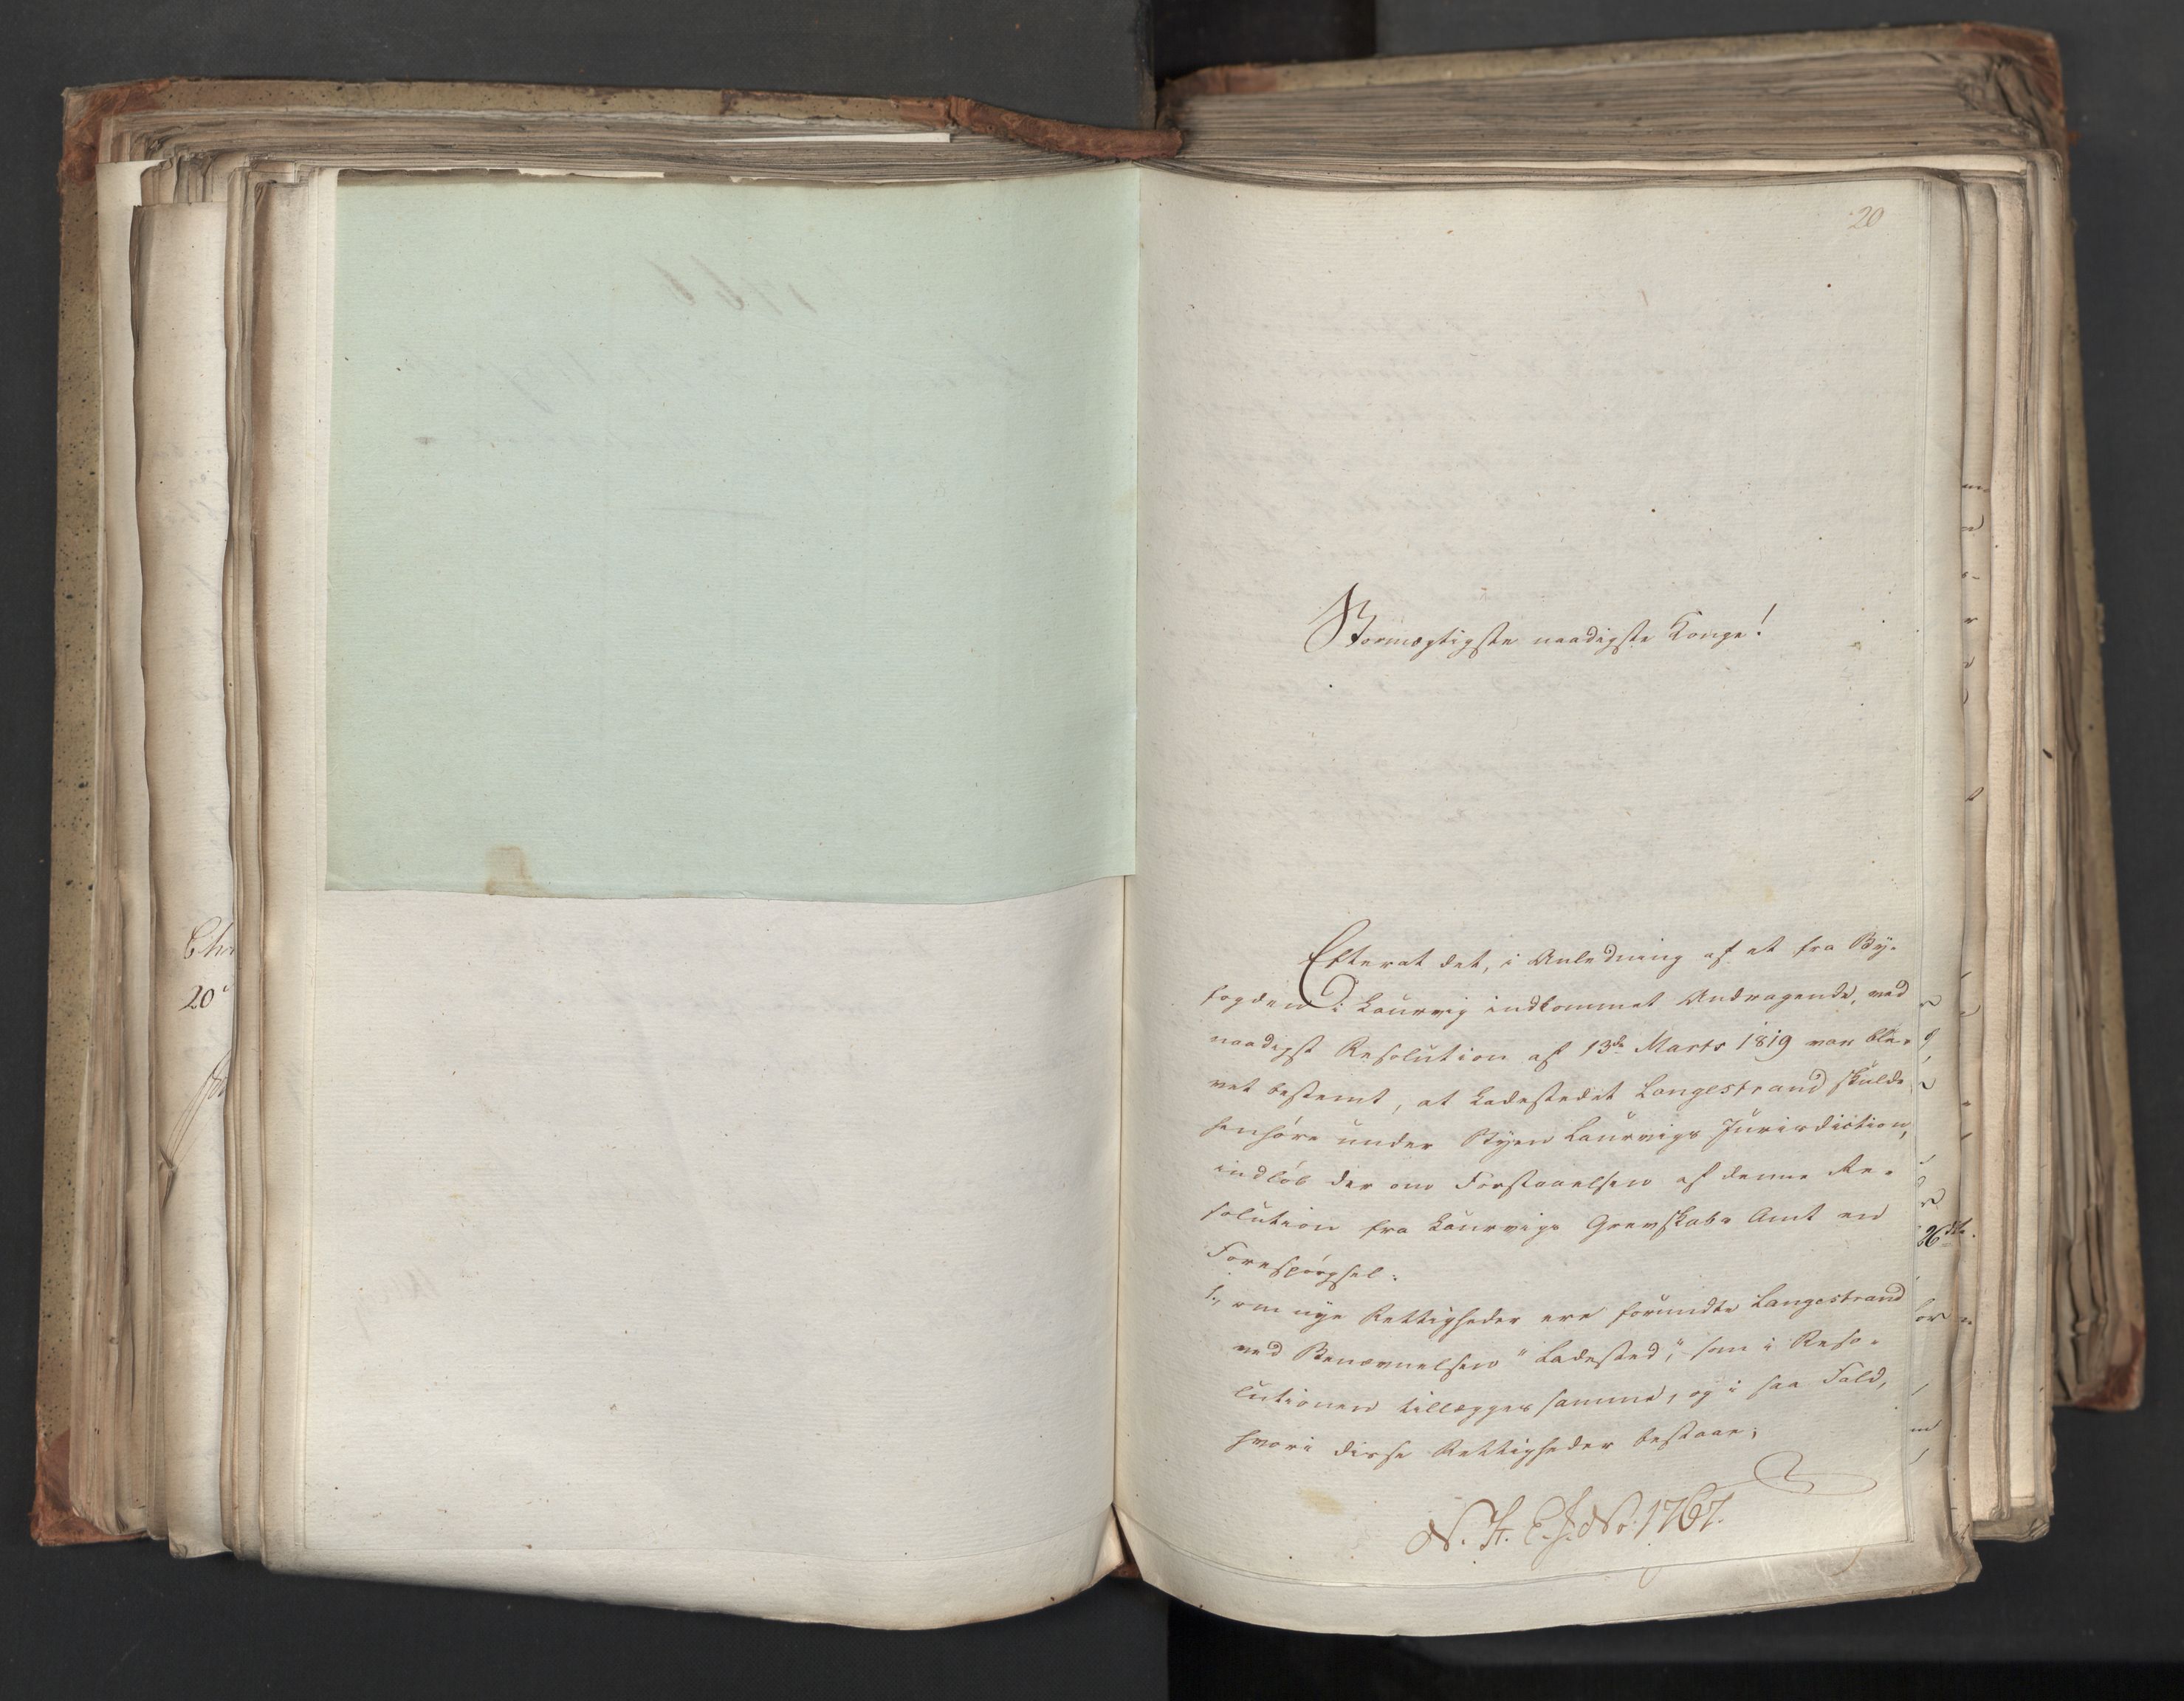 20
Stormægtigste naadigste Konge!
Efterat det, i Anledning af et fra By-
fogden i Laurvig indkommet Andragende, ved
naadigst Resolution af 13de Marts 1819 var ble-
vet bestemt, at Ladestedet Langestrand skulde
henhöre under Byen Laurvigs Jurisdiction,
indlöb der om Forstaaelsen af denne Re-
solution fra Laurvigs Grevskabs Amt en
Forespörgsel:
1, om nye Rettigheder ere forundte Langestrand
ved Benævnelsen "Ladested," som i Reso-
lutionen tillægges samme, og i saa Fald,
hvori disse Rettigheder bestaae;
N. H. E. J. No. 1767.
20
26de